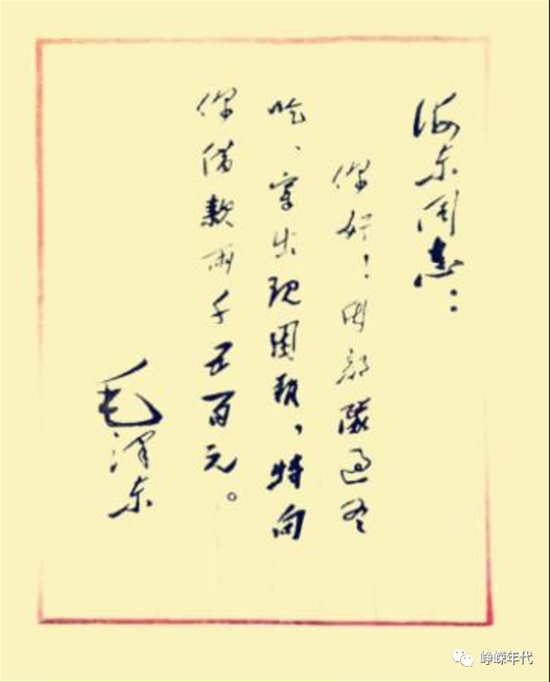 海东同志：
你好！因部队过冬
吃、穿出现困难，特向
你借款两千五百元。
毛泽东
峥嵘年代